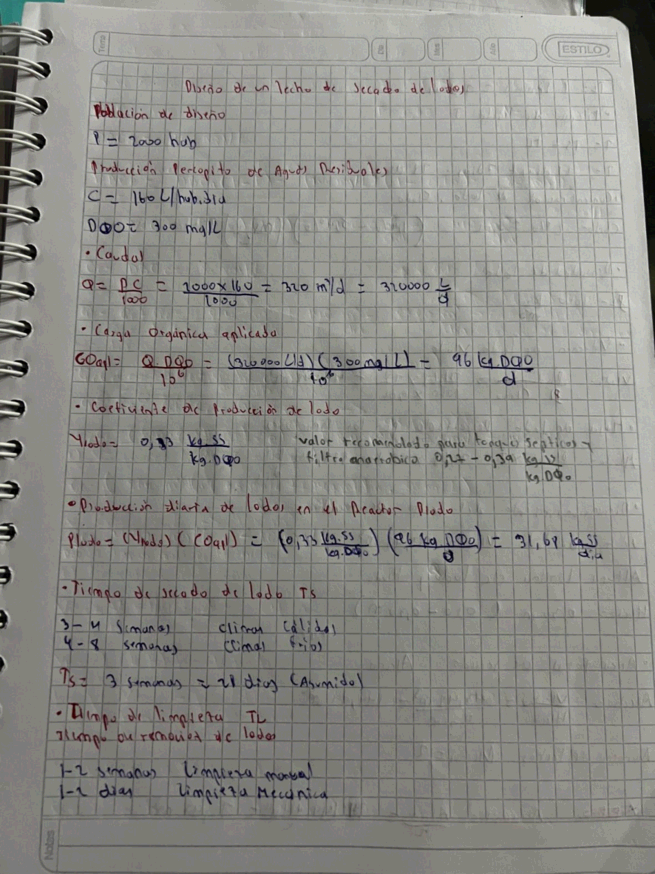 ESTILO
Diseño de un lecho de secado de lodos
Población de diseño
P = 2000 hab
Producción Percapita de Aguas Residuales
C = 160 L/hab.dia
DQO = 300 mg/L
• Caudal
Q = PC/1000 = 2000x160/1000 = 320 m³/d = 320000 L/d
• Carga Orgánica aplicada
COapl = Q.DQO/10⁶ = (320000 L/d)(300 mg/L)/10⁶ = 96 kg.DQO/d
• Coeficiente de Producción de lodo
Ylodo = 0,33 kg.SS/kg.DQO valor recomendado para tanque Septicos y
filtro anaerobico 0,27 - 0,39 kg.SS/kg.DQO
• Producción diaria de lodos en el Reactor Plodo
Plodo = (Ylodo)(COapl) = (0,33 kg.SS/kg.DQO)(96 kg DQO/d) = 31,68 kg SS/dia
• Tiempo de secado de lodo Ts
3-4 semanas climas Calidos
4-8 semanas climas frios
Ts = 3 semanas = 21 dias (Asumido)
• Tiempo de limpieza TL
Tiempo de de lodos
1-2 semanas Limpieza manual
1-2 dias Limpieza Mecánica
Notas